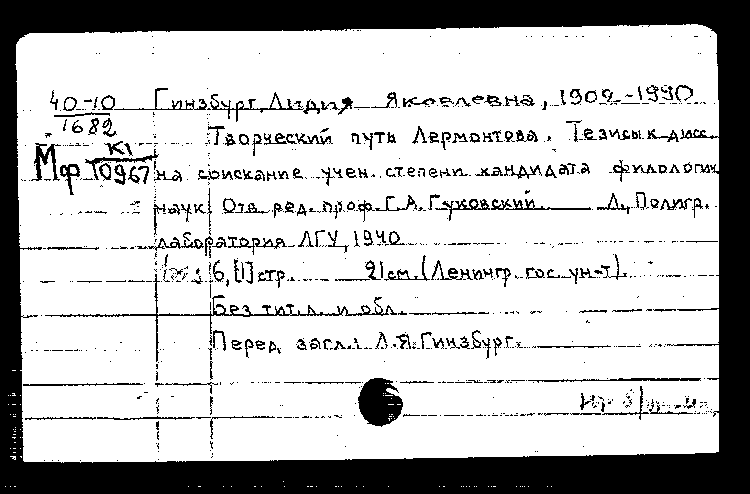 40-10 Гинзбург, Лидия Яковлевна, 1902-1990
1682
Творческий путь Лермонтова. Тезисы к дисс.
Мф К1
10967 на соискание учен. степени кандидата филологич.
наук. Отв. ред. проф. Г.А. Гуковский. Л., Полигр.
лаборатория ЛГУ, 1940
6, [1] стр. 21 см. (Ленингр. гос. ун-т).
Без тит. л. и обл.
Перед загл.: Л.Я. Гинзбург.